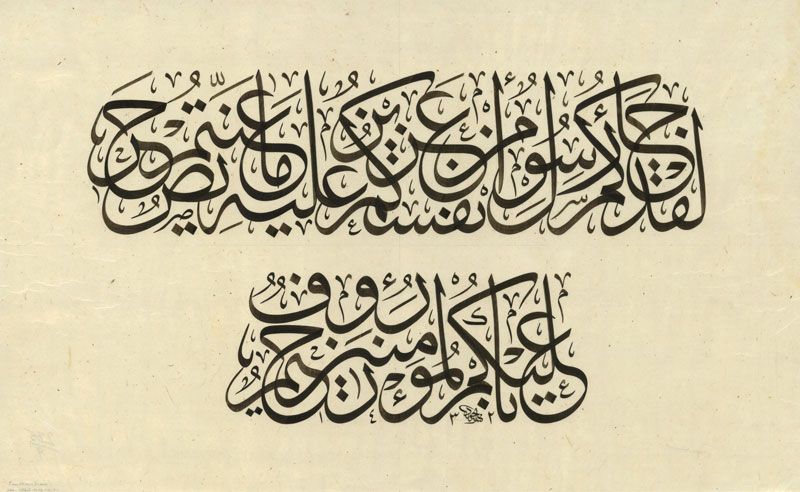 لقد جاءكم رسول من أنفسكم عزيز عليه ما عنتم حريص
عليكم بالمؤمنين رؤف رحيم